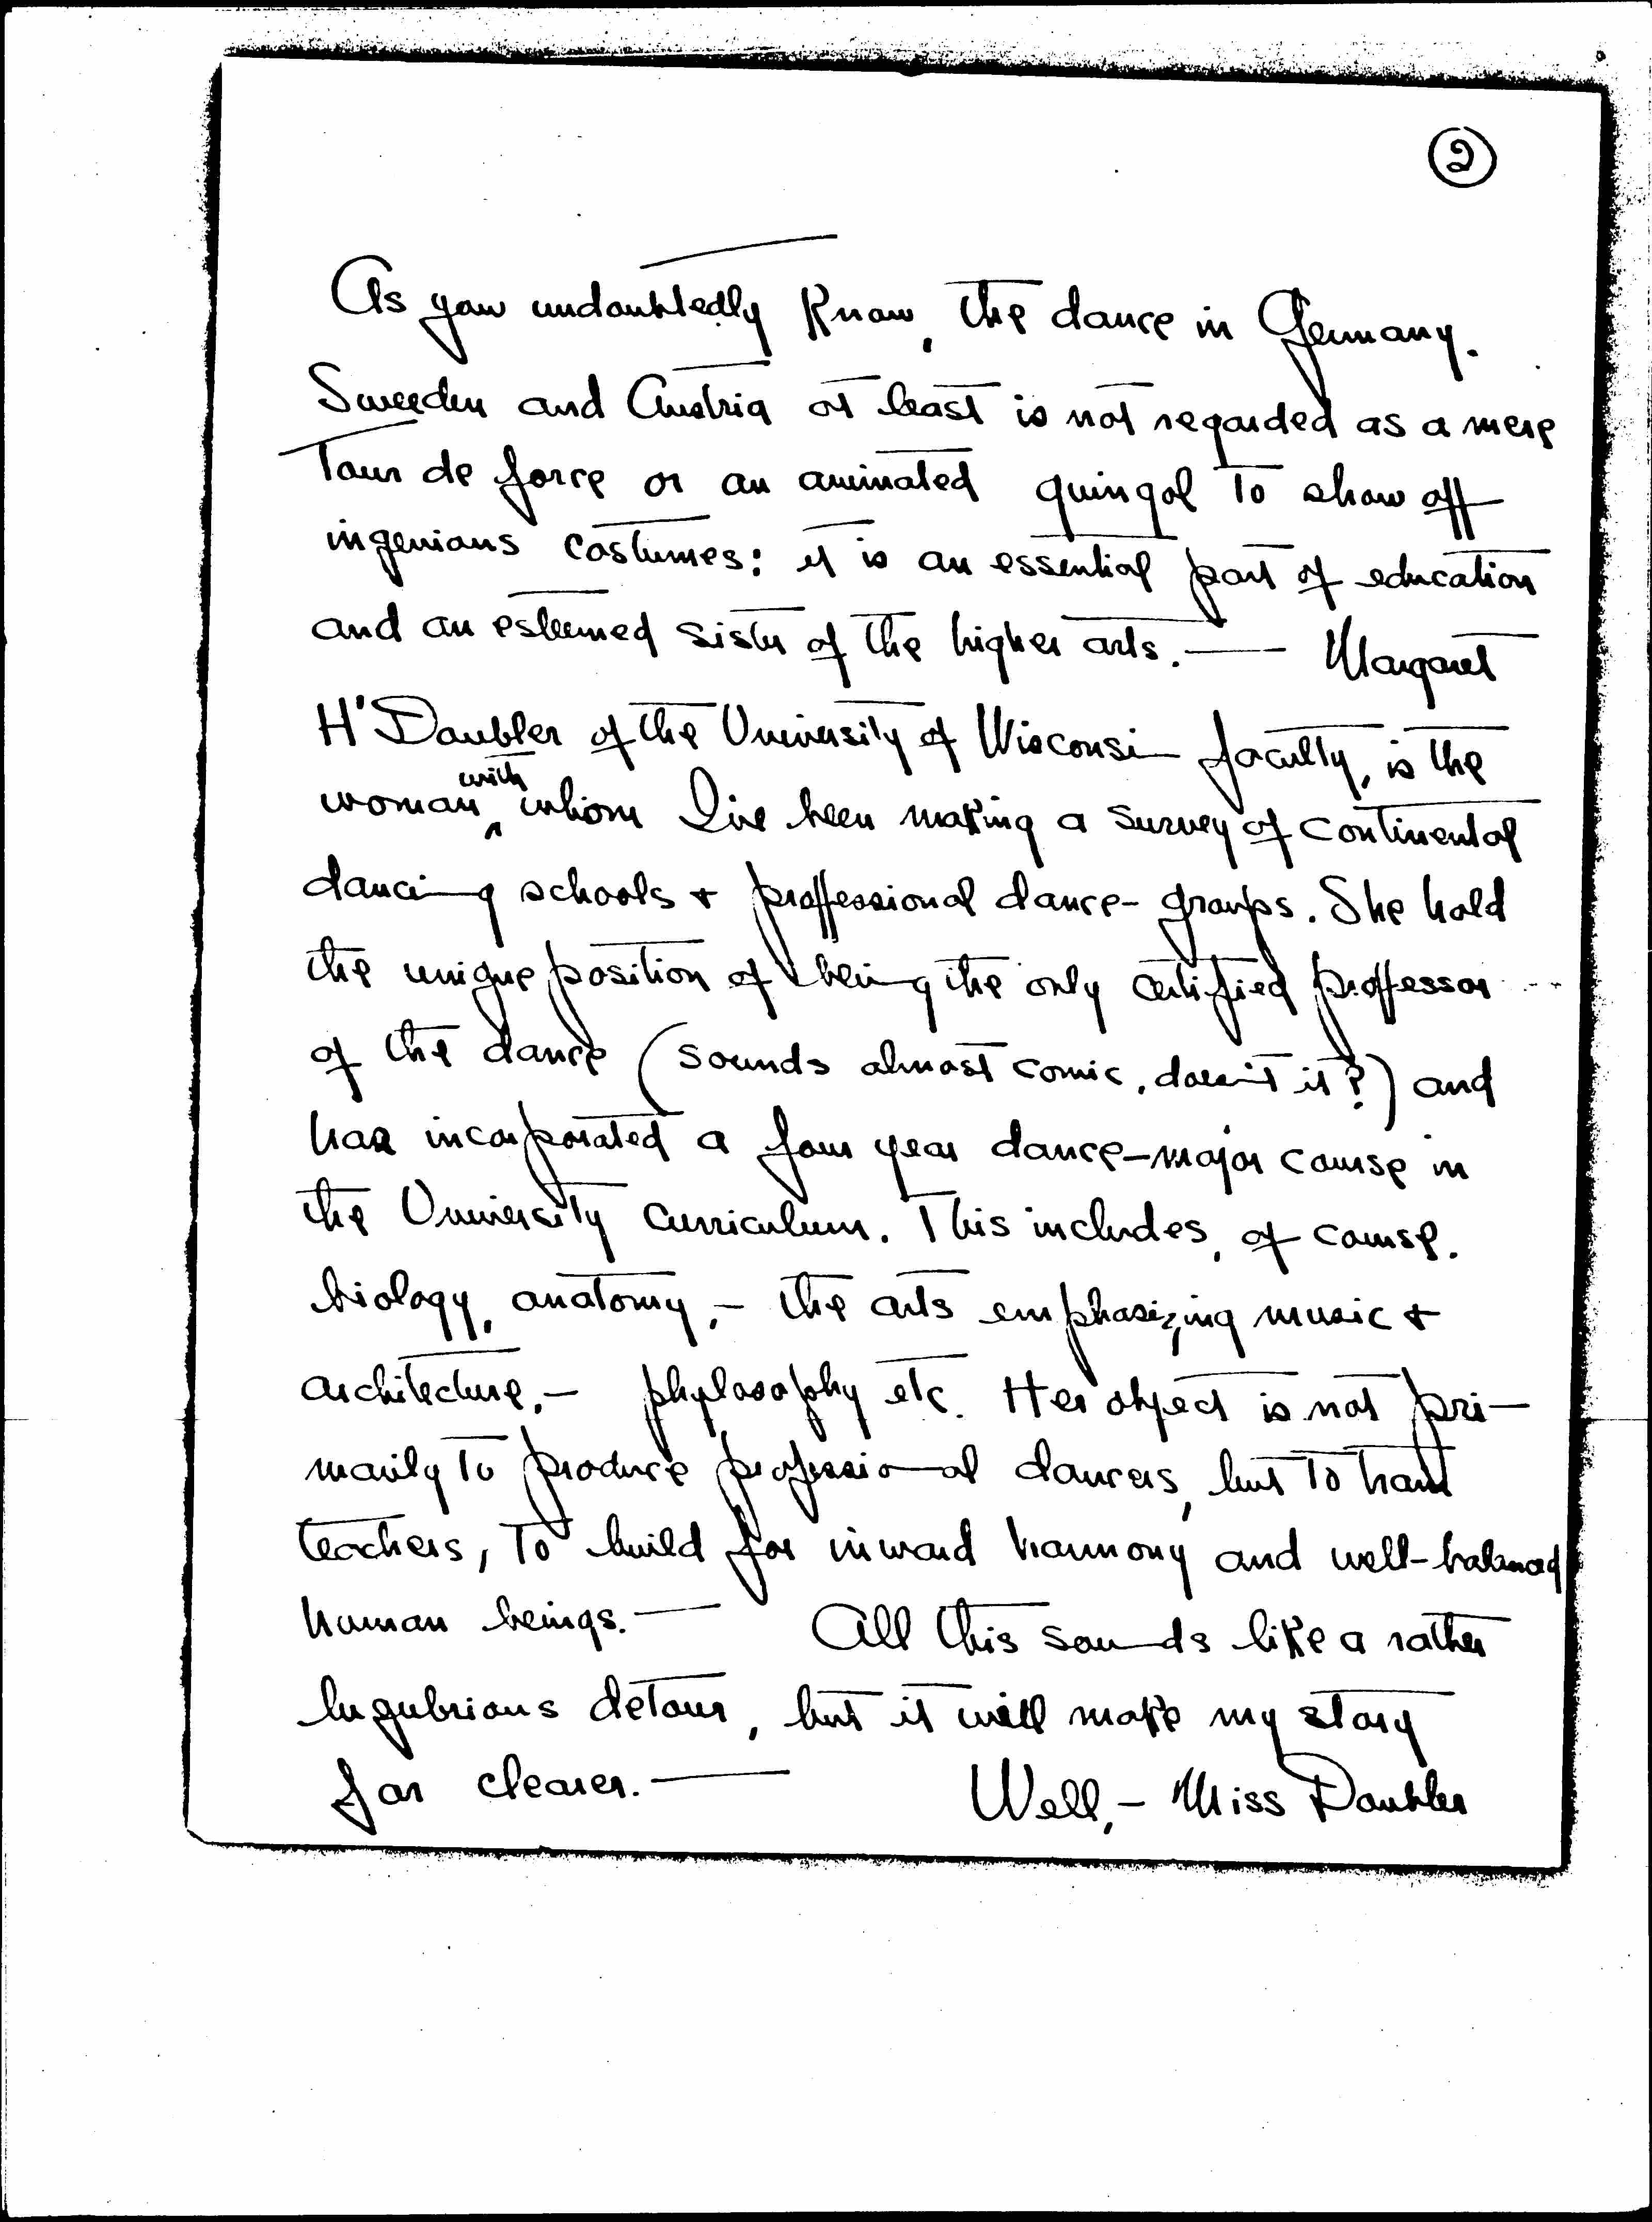 2
As you undoubtedly know, the dance in Germany,
Sweeden and Austria at least is not regarded as a mere
tour de force or an animated guingol to show off
ingenious costumes: it is an essential part of education
and an esteemed sister of the higher arts. — Margaret
H'Doubler of the University of Wisconsin faculty, is the
with
woman ^ whom I've been making a survey of continental
dancing schools & proffessional dance-groups. She hold
the unique position of being the only certified proffessor
of the dance (sounds almost comic, doesn't it?) and
has incorporated a four year dance-major course in
the University curriculum. This includes, of course,
biology, anatomy, - the arts emphasizing music &
architecture, - phylosophy etc. Her object is not pri-
marily to produce professional dancers, but to train
teachers, to build for inward harmony and well-balanced
human beings. — All this sounds like a rather
lugubrious detour, but it will make my story
far clearer. — Well, - Miss Doubler